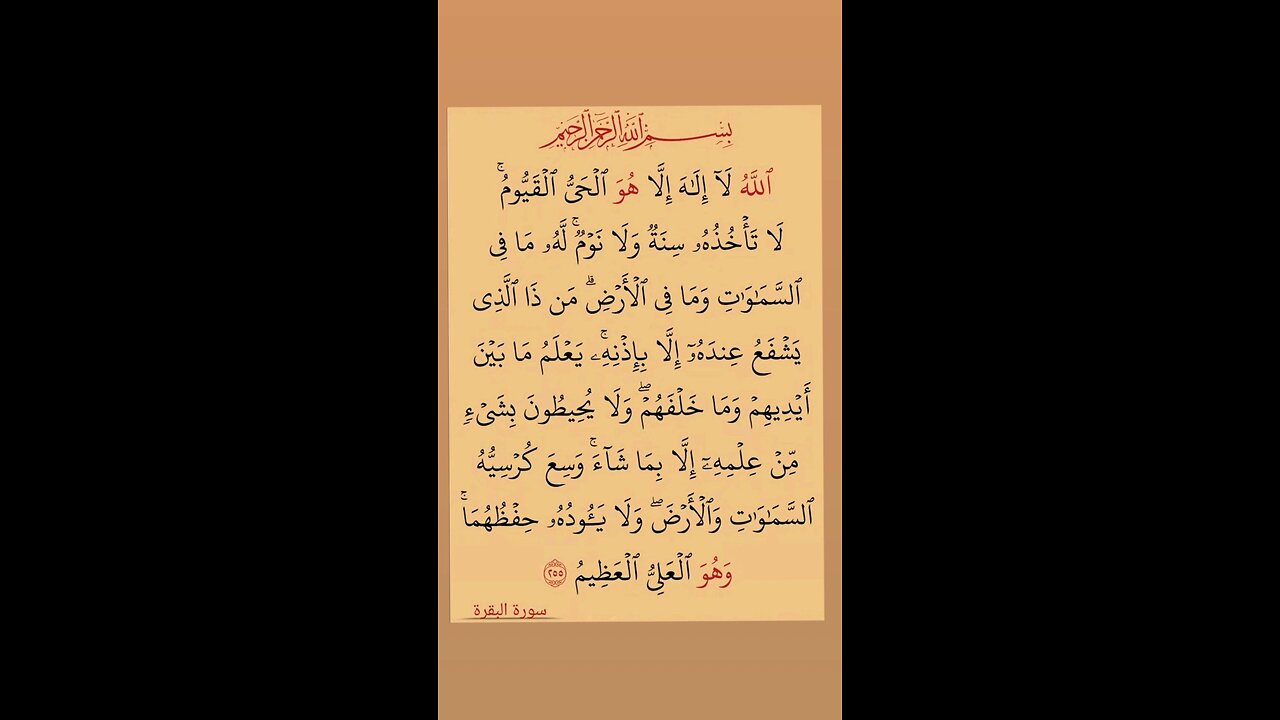 بِسْمِ ٱللَّهِ ٱلرَّحْمَٰنِ ٱلرَّحِيمِ
ٱللَّهُ لَآ إِلَـٰهَ إِلَّا هُوَ ٱلْحَىُّ ٱلْقَيُّومُ ۚ
لَا تَأْخُذُهُۥ سِنَةٌ وَلَا نَوْمٌ ۚ لَّهُۥ مَا فِى
ٱلسَّمَـٰوَٰتِ وَمَا فِى ٱلْأَرْضِ ۗ مَن ذَا ٱلَّذِى
يَشْفَعُ عِندَهُۥٓ إِلَّا بِإِذْنِهِۦ ۚ يَعْلَمُ مَا بَيْنَ
أَيْدِيهِمْ وَمَا خَلْفَهُمْ ۖ وَلَا يُحِيطُونَ بِشَىْءٍ
مِّنْ عِلْمِهِۦٓ إِلَّا بِمَا شَآءَ ۚ وَسِعَ كُرْسِيُّهُ
ٱلسَّمَـٰوَٰتِ وَٱلْأَرْضَ ۖ وَلَا يَـُٔودُهُۥ حِفْظُهُمَا ۚ
وَهُوَ ٱلْعَلِىُّ ٱلْعَظِيمُ ٢٥٥
سورة البقرة